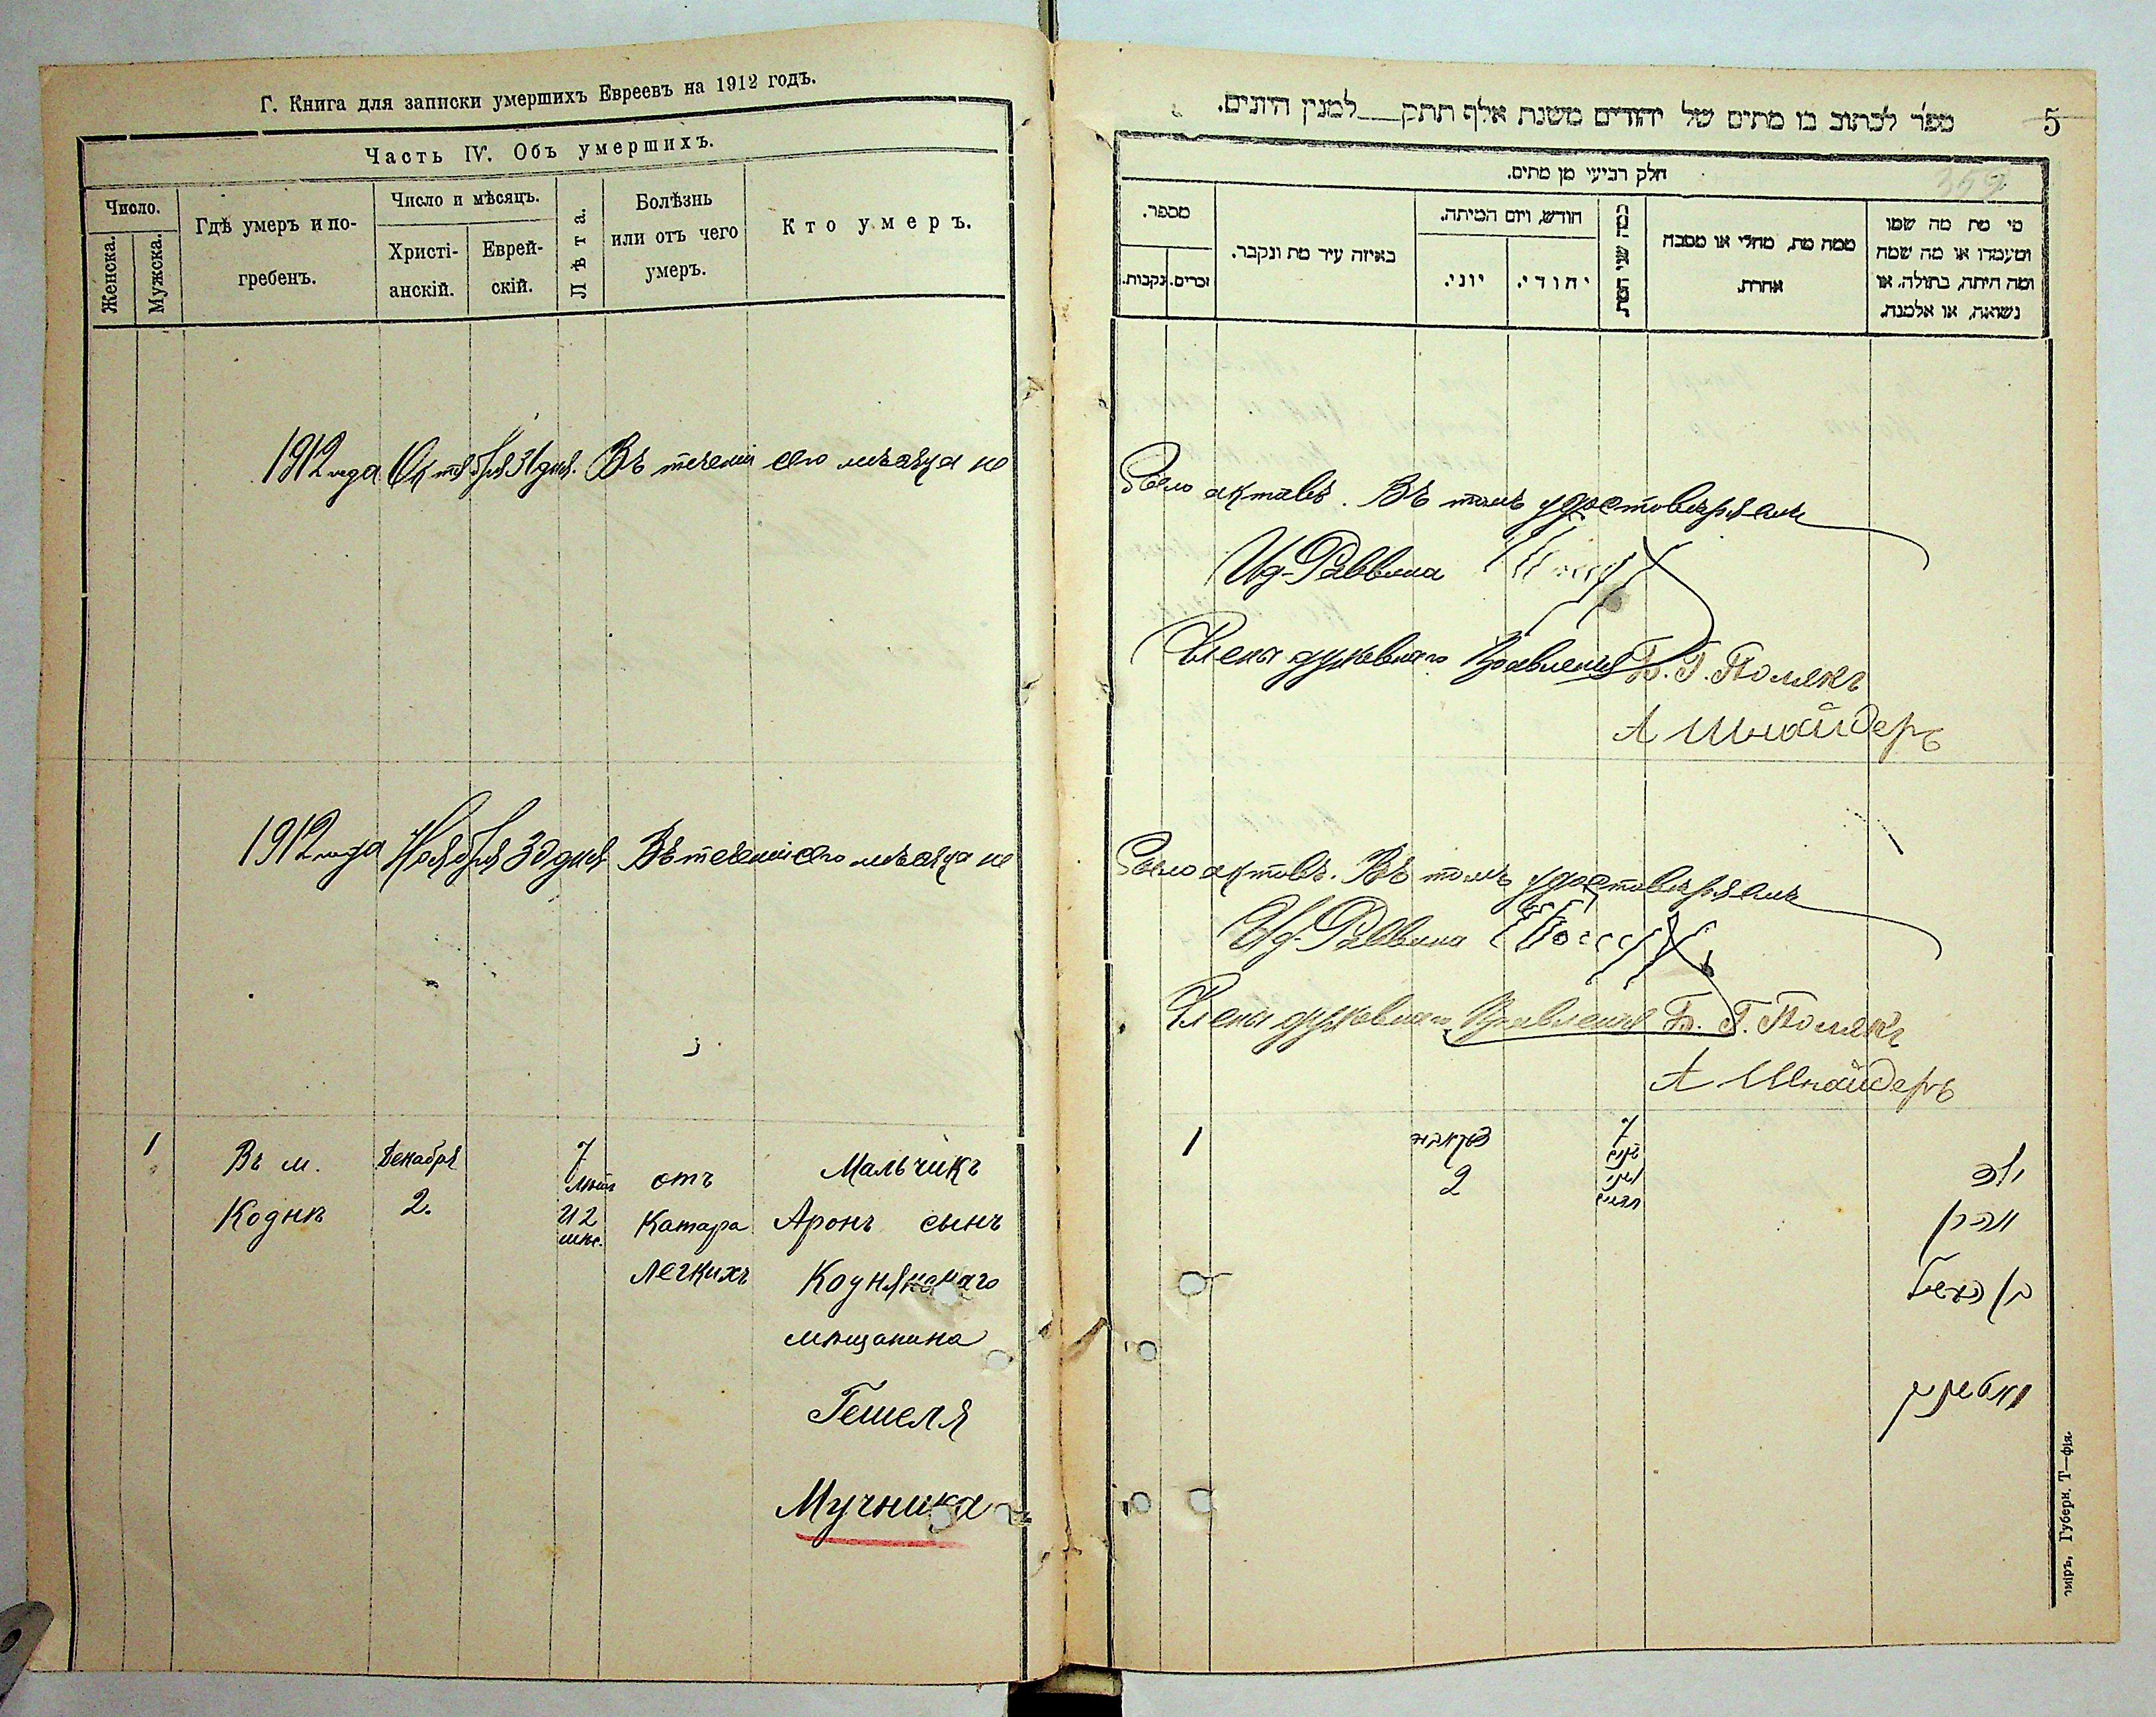 Г. Книга для записки умершихъ Евреевъ на 1912 годъ.
Часть IV. Объ умершихъ.
Число.
Женска.
Мужска.
Гдѣ умеръ и по-
гребенъ.
Число и мѣсяцъ.
Христі-
анскій.
Еврей-
скій.
Лѣта.
Болѣзнь
или отъ чего
умеръ.
Кто умеръ.
1912 года Октября 31 дня. Въ теченіи сего мѣсяца не
1912 года Ноября 30 дня Въ теченіи сего мѣсяца не
1
Въ м.
Кодни
Декабря
2.
7
лѣтъ
и 2
мѣс.
отъ
Катара
легкихъ
Мальчикъ
Аронъ сынъ
Коднянскаго
мѣщанина
Гешеля
Мучника
ספר לכתוב בו מתים של יהודים משנת אלף תתק למנין היונים.
5
359
חלק רביעי מן מתים.
מספר.
זכרים.
נקבות.
באיזה עיר מת ונקבר.
חודש, ויום המיתה.
יוני.
יהודי.
כמה שני המת
ממה מת, מחלי או מסבה
אחרת.
מי מת מה שמו
ומעמדו או מה שמה
ומה היתה, בתולה, או
נשואה, או אלמנה.
было актовъ. Въ томъ удостовѣряемъ
Ид. Раввина
Члены духовнаго Правленія Б. Г. Полякъ
А Шнайдеръ
было актовъ. Въ томъ удостовѣряемъ
Ид. Раввина
Члены духовнаго Правленія Б. Г. Полякъ
А Шнайдеръ
1
דעקאבר
2
7
שנים
ושני
חדשים
ילד
אהרן
בן העשל
מוטשניק
миръ, Губерн. Т—фія.